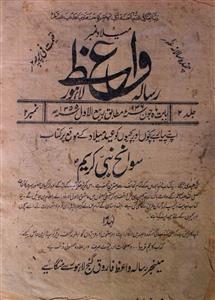 میلاد نمبر
واعظ
رسالہ
لاہور
جلد ۲
بابت ماہ جون ۱۹۳۶ء مطابق ربیع الاول ۱۳۵۵ھ
نمبر ۲
اپنے پیارے بچوں اور بچیوں کو عید میلاد کے موقع پر کتاب
سوانح نبی کریم
مینیجر رسالہ واعظ فاروق گنج لاہور سے منگائیے